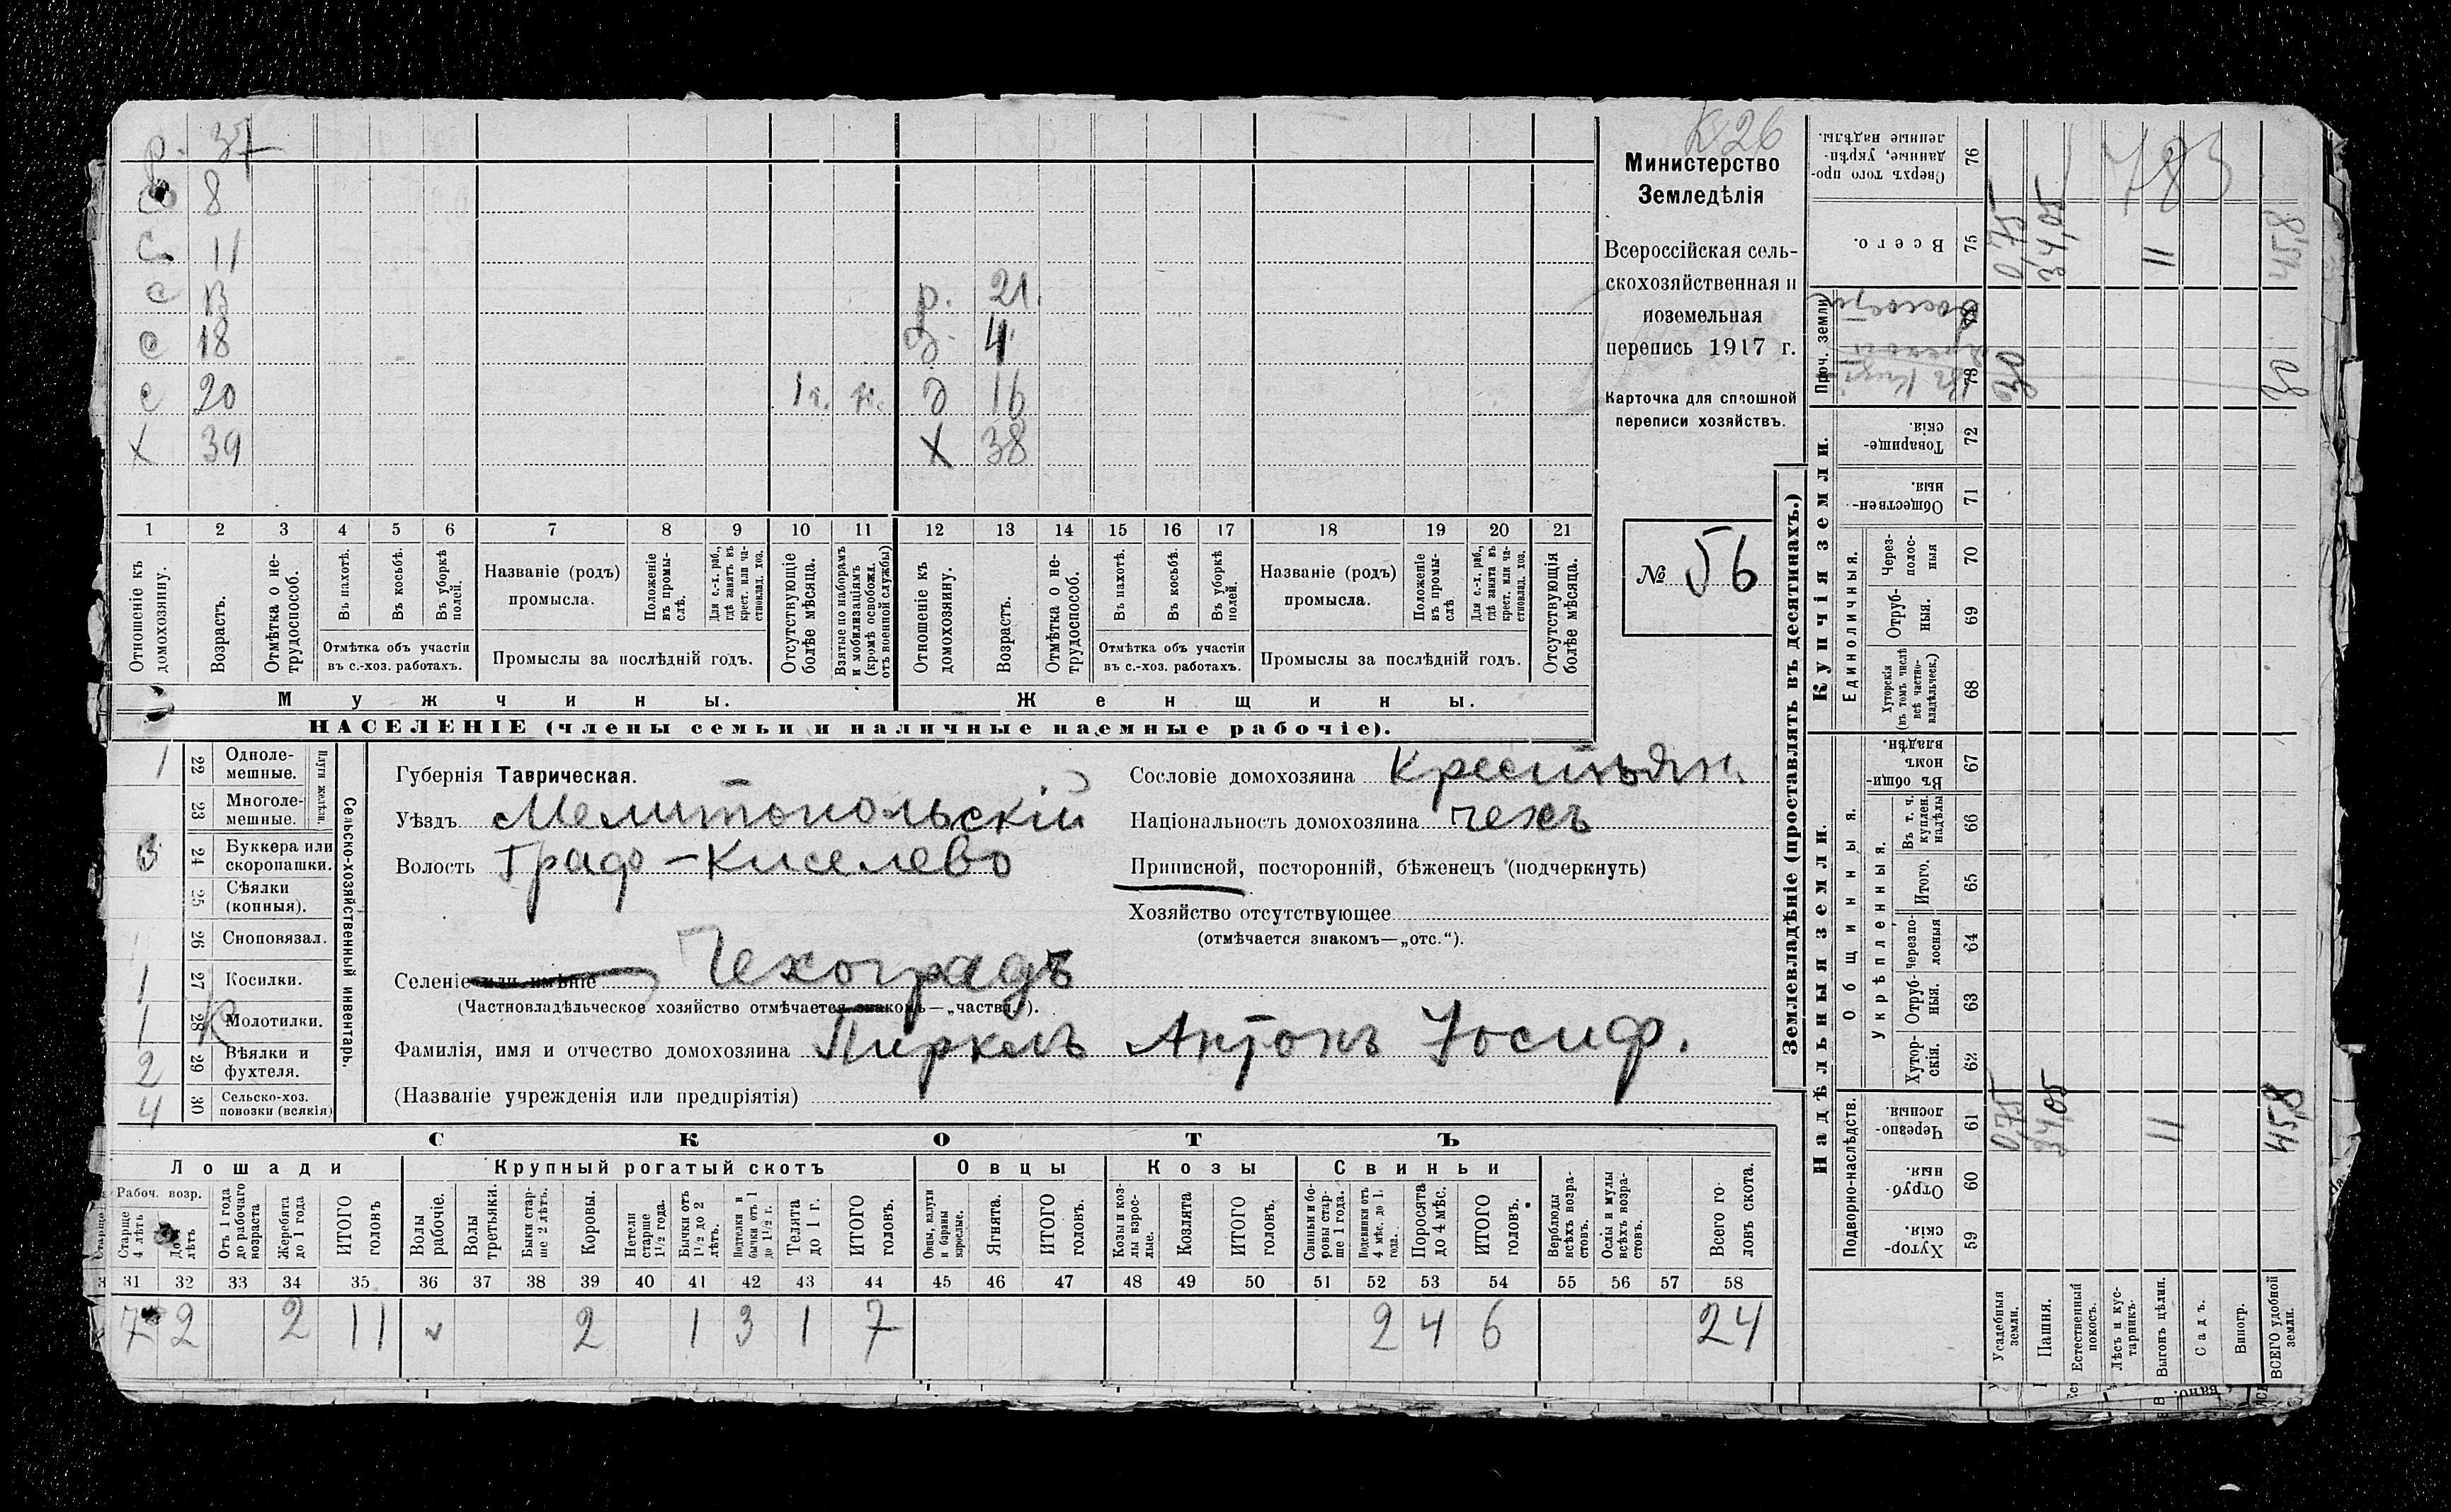 р. 37
с 8
с 11
с 13 р. 21.
с 18 д. 4
с 20 1 г. н. д 16
X 39 X 38
1 2 3 4 5 6 7 8 9 10 11 12 13 14 15 16 17 18 19 20 21
Отношеніе къ домохозяину.
Возрастъ.
Отмѣтка о нетрудоспособ.
Въ пахотѣ.
Въ косьбѣ.
Въ уборкѣ полей.
Отмѣтка объ участіи въ с.-хоз. работахъ.
Названіе (родъ) промысла.
Положеніе въ промыслѣ.
Для с.-х. раб., гдѣ занятъ въ крест. или частновлад. хоз.
Промыслы за послѣдній годъ.
Отсутствующіе болѣе мѣсяца.
Взятые по наборамъ и мобилизаціямъ (кромѣ освобожд. отъ военной службы)
Отношеніе къ домохозяину.
Возрастъ.
Отмѣтка о нетрудоспособ.
Въ пахотѣ.
Въ косьбѣ.
Въ уборкѣ полей.
Отмѣтка объ участіи въ с.-хоз. работахъ.
Названіе (родъ) промысла.
Положеніе въ промыслѣ
Для с.-х. раб., гдѣ занята въ крест. или частновлад. хоз.
Промыслы за послѣдній годъ.
Отсутствующія болѣе мѣсяца.
Мужчины. Женщины.
НАСЕЛЕНІЕ (члены семьи и наличные наемные рабочіе).
К26
Министерство
Земледѣлія
Всероссійская сель-
скохозяйственная и
поземельная
перепись 1917 г.
Карточка для сплошной
переписи хозяйствъ.
№ 56
1 22 Однолемешные.
23 Многолемешные.
Плуги желѣзн.
3 24 Буккера или скоропашки.
25 Сѣялки (конныя).
26 Сноповязал.
1 27 Косилки.
1 28 К Молотилки.
2 29 Вѣялки и фухтеля.
4 30 Сельско-хоз. повозки (всякія)
Сельско-хозяйственный инвентарь.
Губернія Таврическая.
Уѣздъ Мелитопольскій
Волость Граф-Киселево
Селеніе или имѣніе Чехоградъ
(Частновладѣльческое хозяйство отмѣчается знакомъ—„частн.").
Фамилія, имя и отчество домохозяина Пиркль Антонъ Іосиф.
(Названіе учрежденія или предпріятія)
Сословіе домохозяина Крестьян.
Національность домохозяина чехъ
Приписной, посторонній, бѣженецъ (подчеркнуть)
Хозяйство отсутствующее
(отмѣчается знакомъ—„отс.").
СКОТЪ
Лошади Крупный рогатый скотъ Овцы Козы Свиньи
Рабоч. возр.
Старше 4 лѣтъ
До лѣтъ
Отъ 1 года до рабочаго возраста
Жеребята до 1 года
ИТОГО головъ
Волы рабочіе.
Волы третьяки.
Быки старше 2 лѣтъ.
Коровы.
Нетели старше 1½ года.
Бычки отъ 1½ до 2 лѣтъ.
Подтелки и бычки отъ 1 до 1½ г.
Телята до 1 г.
ИТОГО головъ.
Овцы, валухи и бараны взрослые.
Ягнята.
ИТОГО головъ.
Козы и козлы взрослые.
Козлята
ИТОГО головъ.
Свиньи и боровы старше 1 года.
Подсвинки отъ 4 мѣс. до 1 года.
Поросята до 4 мѣс.
ИТОГО головъ.
Верблюды всѣхъ возрастовъ.
Ослы и мулы всѣхъ возрастовъ.
Всего головъ скота.
31 32 33 34 35 36 37 38 39 40 41 42 43 44 45 46 47 48 49 50 51 52 53 54 55 56 57 58
7 2 2 11 2 1 3 1 7 2 4 6 24
Землевладѣніе (проставлять въ десятинахъ.)
Надѣльныя земли. Купчія земли. Проч. земли
Подворно-наслѣдств.
Общинныя.
Укрѣпленныя.
Единоличныя.
59 Хуторскія.
60 Отрубныя.
61 Черезполосныя.
62 Хуторскія.
63 Отрубныя.
64 Черезполосныя
65 Итого.
66 Въ т. ч. куплен. надѣлы
67 Въ общинномъ владѣн.
68 Хуторскія (въ томъ числѣ всѣ частновладѣльческ.)
69 Отрубныя.
70 Черезполосныя
71 Общественныя.
72 Товарищескія.
73
75 Всего.
76 Сверхъ того проданные, укрѣпленные надѣлы.
Усадебныя земли. 0,75 0,75
Пашня. 34,05 34,05
Естественный покосъ.
Лѣсъ и кустарникъ.
Выгонъ цѣлин. 11 11
Садъ.
Виногр.
ВСЕГО удобной земли. 45,8 30 45,8
30
783